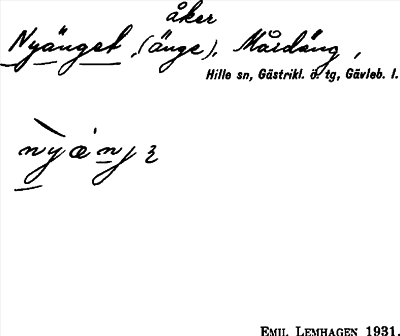 åker
Nyänget, (änge), Måsdäng,
Hille sn, Gästrikl. ö. tg, Gävleb. l.
EMIL LEMHAGEN 1931.